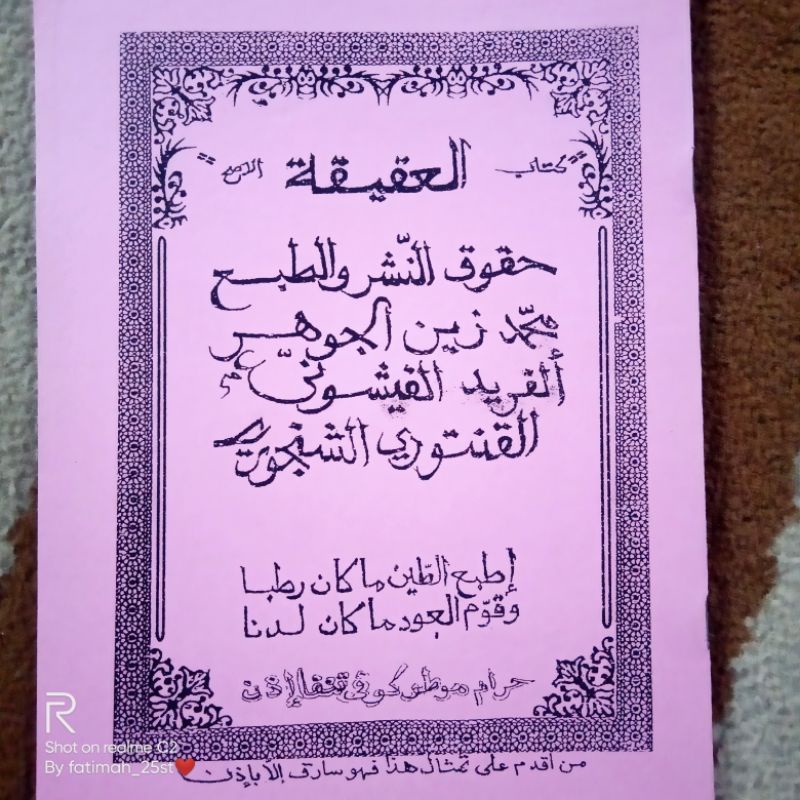 كتاب "العقيقة"
حقوق النّشر والطبع
محمّد زين الجوهر
ألفريد الفيشونيّ
القنتوري الشنجوري
إطبع الطّين ما كان رطبا
وقوّم العود ما كان لدنا
حرام موطو كوفي تنفا إذن
من أقدم على تمثال هذا فهو سارق إلاّ بإذن
R
Shot on realme C2
By fatimah_25st❤️